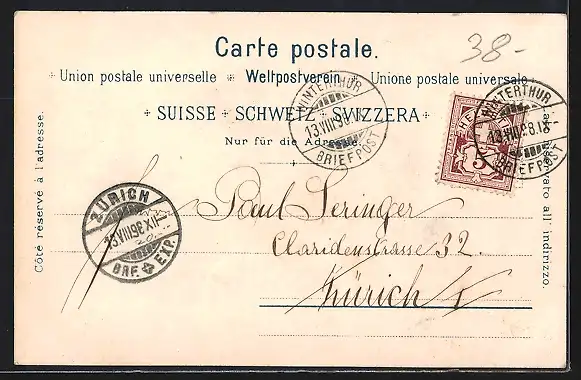 Carte postale.
38-
Union postale universelle Weltpostverein Unione postale universale
SUISSE SCHWEIZ SVIZZERA
Nur für die Adresse.
Côté réservé à l'adresse.
WINTERTHUR
13.VIII.98.IX
BRIEFPOST
WINTERTHUR
13.VIII.98.IX
BRIEFPOST
HE
5
Lato riservato all' indirizzo.
ZÜRICH
13.VIII.98.XII
BRF. EXP.
Paul Geringer
Claridenstrasse 32.
Zürich I